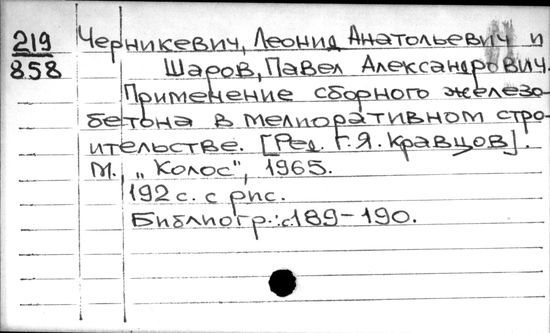 219 Черникевич, Леонид Анатольевич и
858 Шаров, Павел Александрович.
Применение сборного железо-
бетона в мелиоративном стро-
ительстве. [Ред. Г.Я. Кравцов].
М., „Колос", 1965.
192 с. с рис.
Библиогр.: с 189-190.